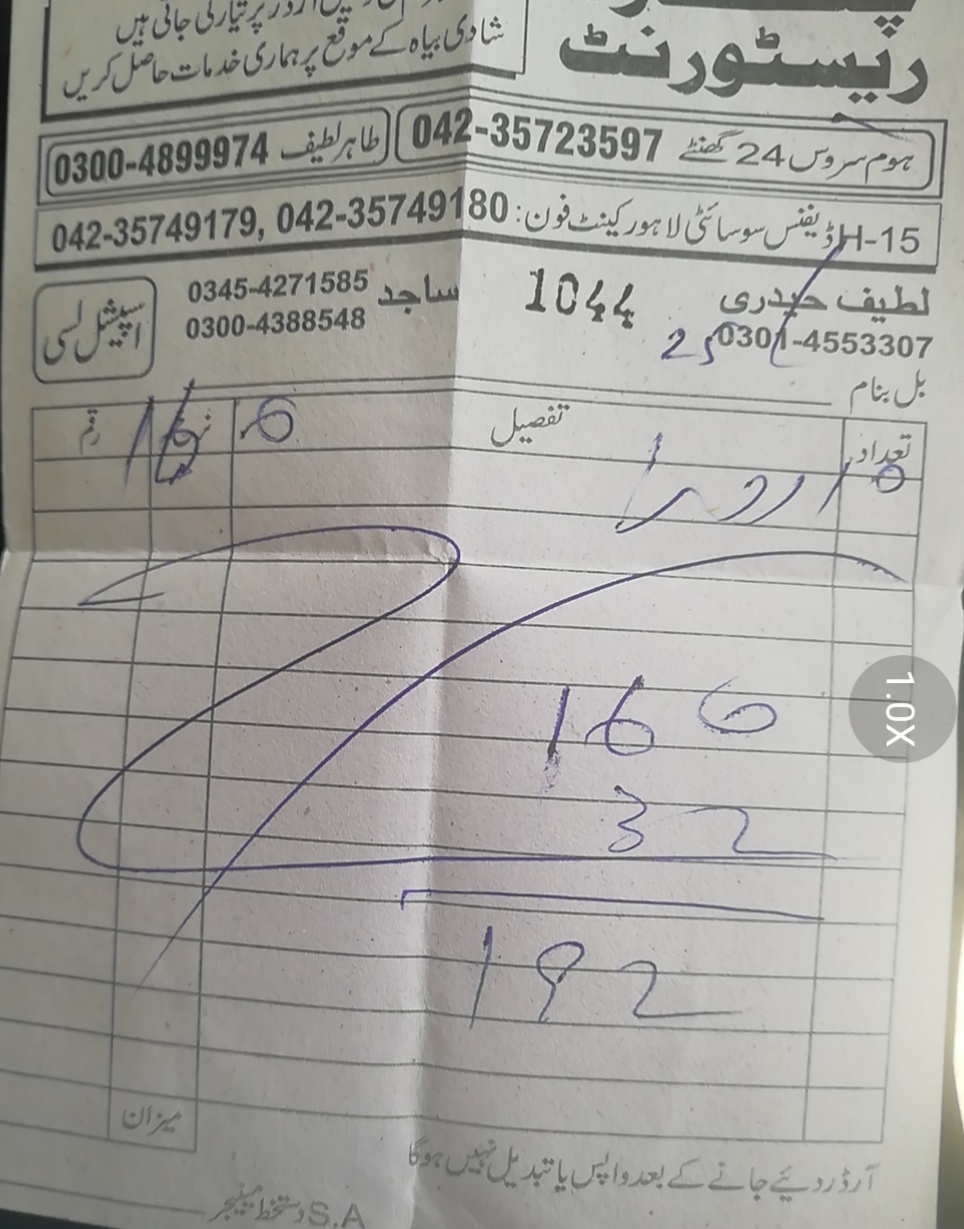 پر تیار کی جاتی ہیں
شادی بیاہ کے موقع پر ہماری خدمات حاصل کریں
ریسٹورنٹ
ہوم سروس 24 گھنٹے 042-35723597
طاہر لطیف 0300-4899974
H-15 ڈیفنس سوسائٹی لاہور کینٹ فون: 042-35749180, 042-35749179
لطیف حیدری 0301-4553307
1044
ساجد 0345-4271585
0300-4388548
اسپیشل لسی
25
بل بنام
تعداد تفصیل رقم
160
10
160
32
192
میزان
آرڈر دیئے جانے کے بعد واپس یا تبدیل نہیں ہوگا
S.A دستخط مینیجر
1.0X